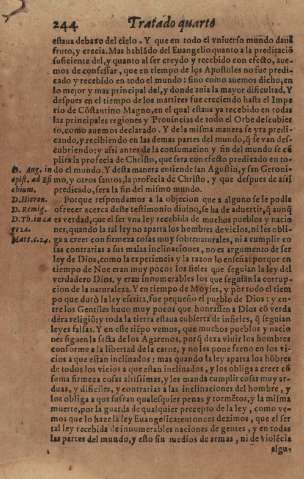 244 Tratado quarto
estaua debaxo del cielo. Y que en todo el vniuerso mundo daua
fruto, y crecia. Mas hablãdo del Euangelio quanto a la predicaciõ
suficiente del, y quanto al ser creydo y recebido con efecto, auemos
de confessar, que en tiempo de los Apostoles no fue predicado
y recebido en todo el mundo: sino como auemos dicho, en
lo mejor y mas principal del, y donde auia la mayor dificultad. Y
despues en el tiempo de los martires fue creciendo hasta el Imperio
de Costantino Magno, en el qual estaua ya recebido en todas
las principales regiones y Prouincias de todo el Orbe descubierto,
como auemos declarado. Y de la misma manera se yra predicando,
y recibiendo en las demas partes del mundo, q̃ se van descubriendo:
y assi antes de la consumacion y fin del mundo se cũplira
la profecia de Christo, que sera con efecto predicado en todo
el mundo. Y desta manera entiende san Agustin, y san Geronimo,
y otros santos, la profecia de Christo, y que despues de assi
predicado, sera la fin del mismo mundo.
D. Aug. in
epist. ad Esi
chium.
D. Hieron.
D. Remig.
D. Th. in ca
Matt. c. 24.
Porque respondamos a la objecion que a alguno se le podia
ofrecer acerca deste testimonio diuino, se ha de aduertir, q̃ aunq̃
es verdad, que el ser vna ley recebida de muchos pueblos y naciones,
quando la tal ley no aparta los hombres de vicios, ni les obliga
a creer con firmeza cosas muy sobrenaturales, ni a cumplir cosas
contrarias a sus malas inclinaciones, no es argumento de ser
ley de Dios, como la experiencia y la razon lo enseña: porque en
tiempo de Noe eran muy pocos los fieles que seguian la ley del
verdadero Dios, y eran innumerables los que seguian la corrupcion
de la naturaleza. Y en tiempo de Moyses, y por todo el tiempo
que durò la ley escrita, fue pequeño el pueblo de Dios: y entre
los Gentiles huuo muy pocos que honrassen a Dios cõ verdadera
religiõ y toda la tierra estaua cubierta de infieles, q̃ seguian
leyes falsas. Y en este tiẽpo vemos, que muchos pueblos y naciones
siguen la secta de los Agarenos, porq̃ dexa viuir los hombres
conforme a la libertad de la carne, y no les pone freno en los vicios
a que estan inclinados: mas quando la ley aparta los hõbres
de todos los vicios a que estan inclinados, y los obliga a creer cõ
suma firmeza cosas altissimas, y les manda cumplir cosas muy arduas,
y dificiles, y contrarias a las inclinaciones del hombre, y
los obliga a que sufran qualesquier penas y tormẽtos, y la misma
muerte, por la guarda de qualquier precepto de la ley, como vemos
que lo haze la ley Euangelica: entonces dezimos, que el ser
tal ley recebida de innumerables naciones de gentes, y en todas
las partes del mundo, y esto sin medios de armas, ni de violẽcia
algu-